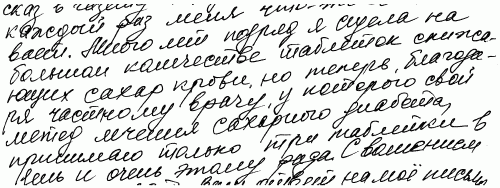 каждый раз меня
вает. Много лет подряд я сидела на
большом количестве таблеток снижа-
ющих сахар крови, но теперь, благода-
ря частному врачу, у которого свой
метод лечения сахарного диабета,
принимаю только три таблетки в
день и очень этому рада. С уважением
на моё письмо